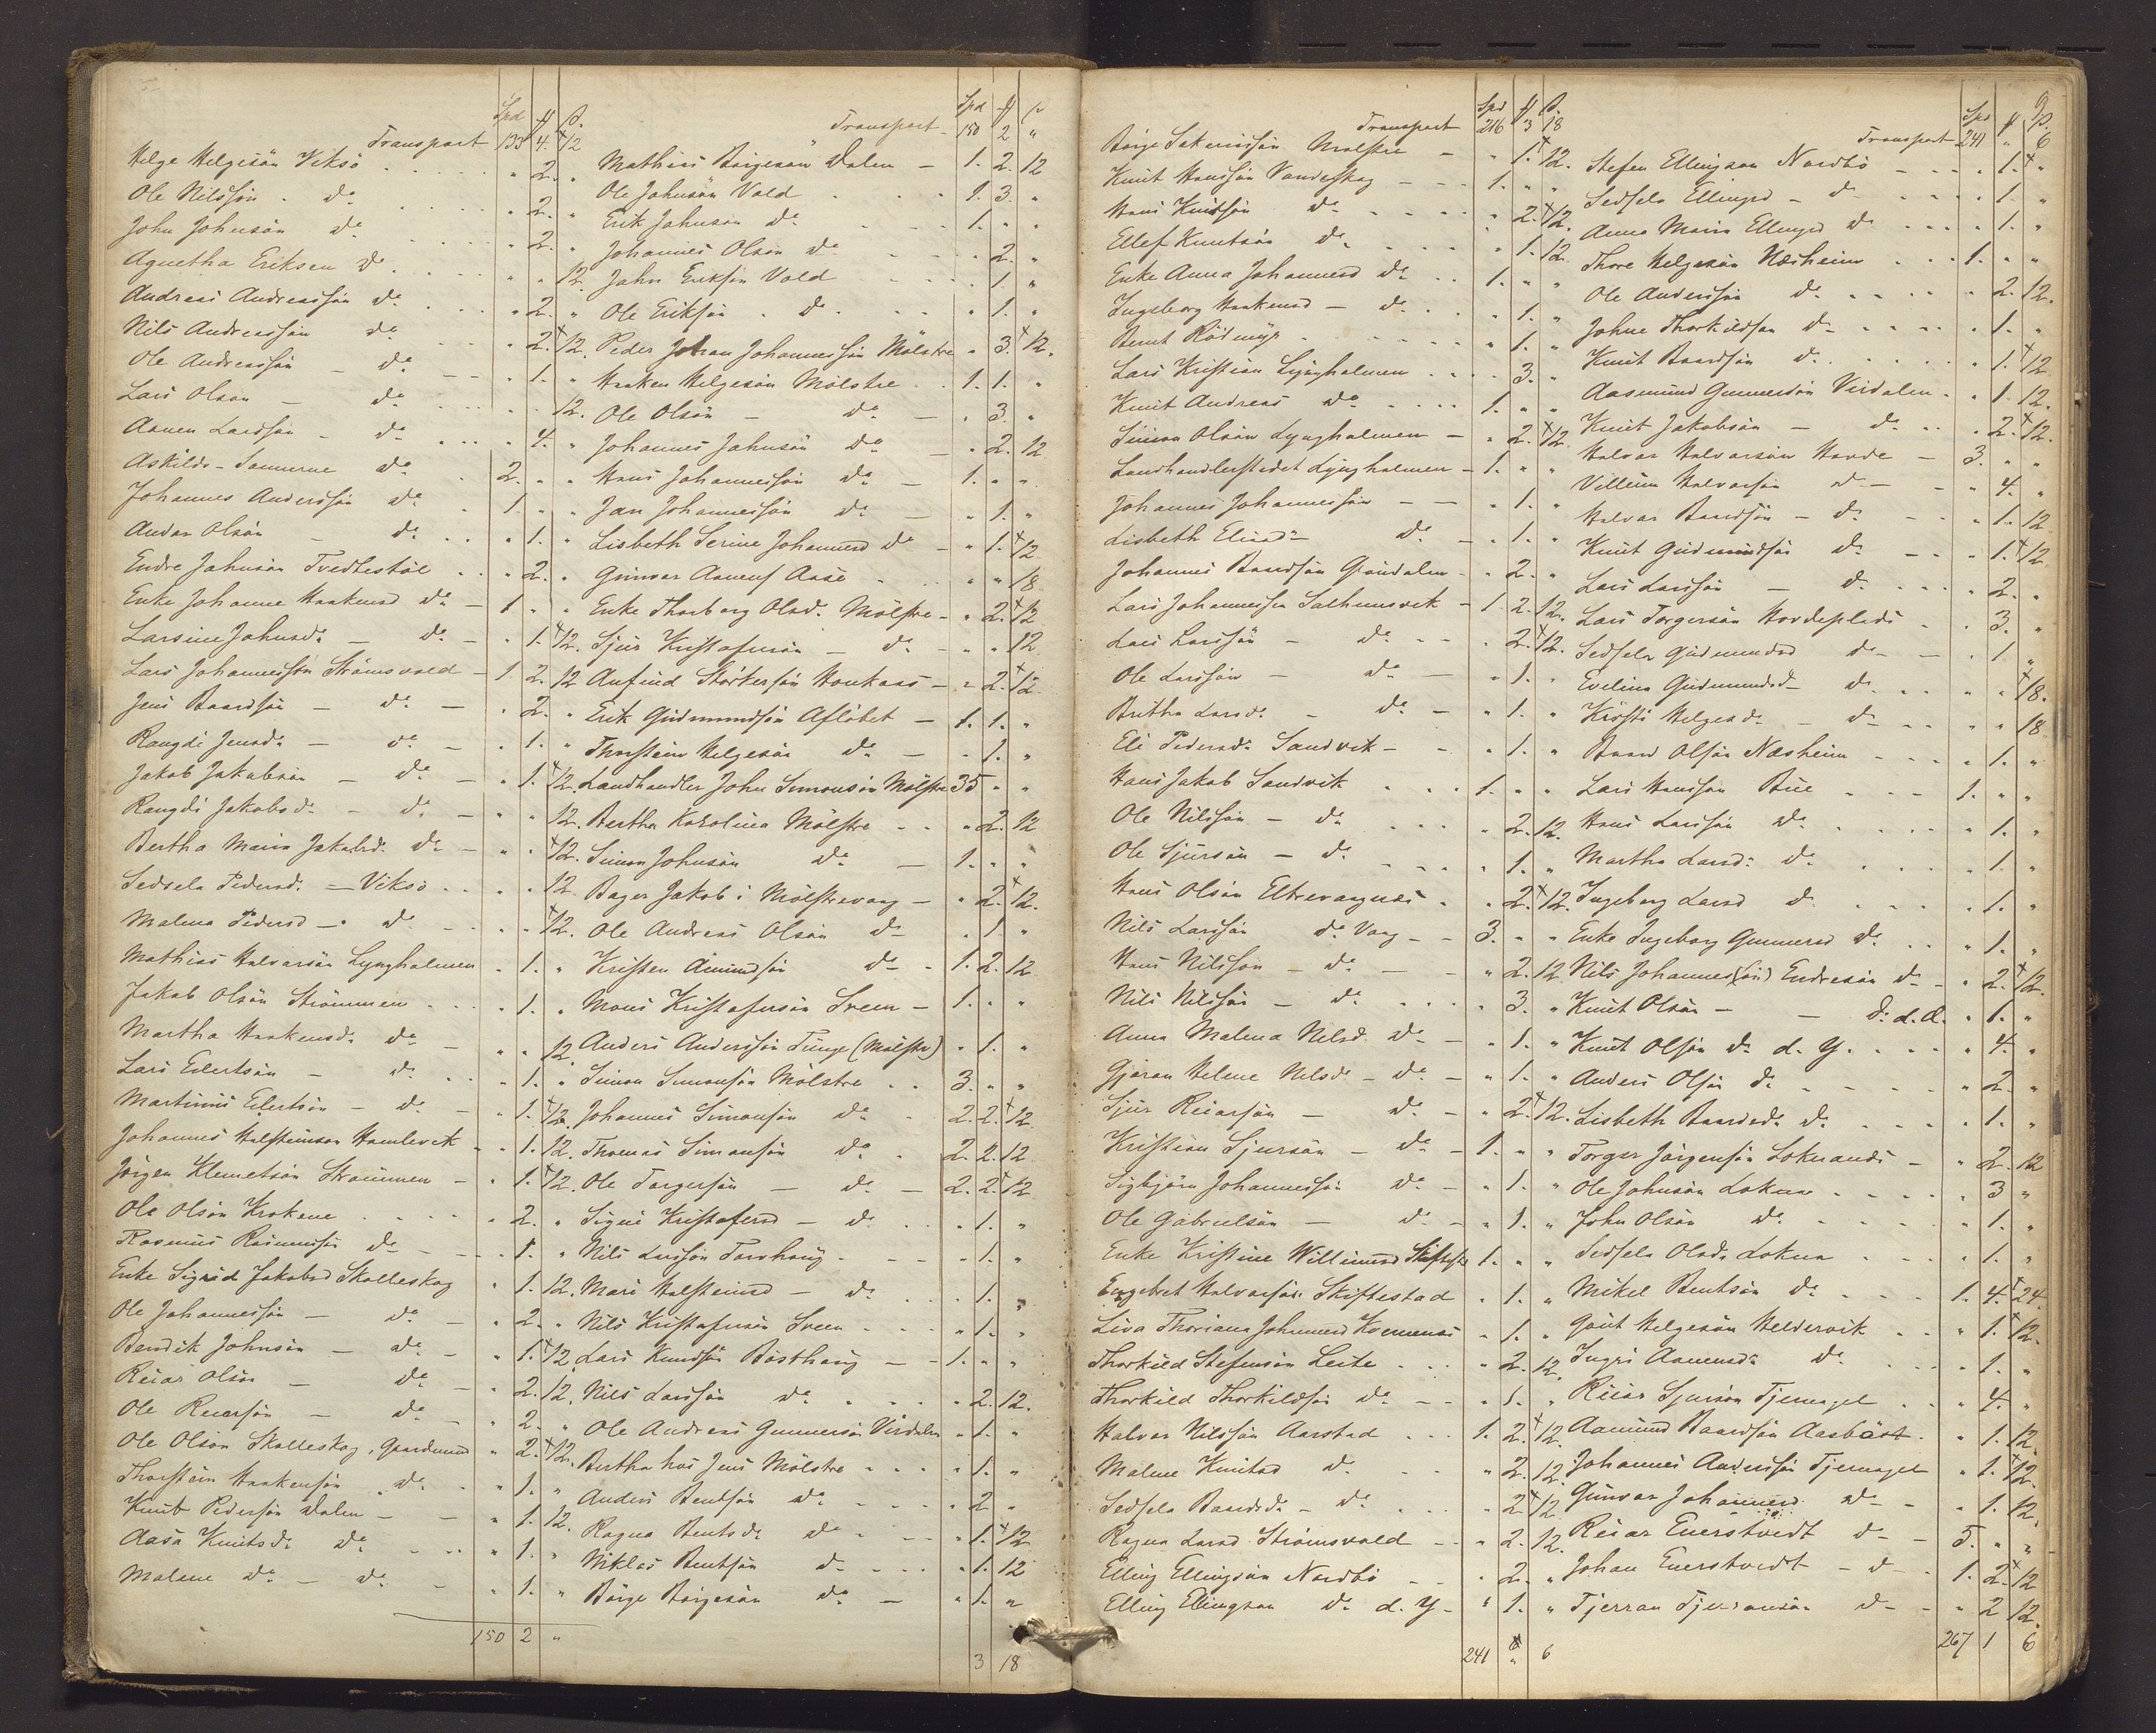 Spd ¥ β.
Transport 133 4. 12
Helge Helgesön Viksö . . . . " 2. "
Ole Nilssön . do . . . . " 2. "
John Johnsön do . . . . " 2. "
Agnetha Eriksen do . . . . " " 12.
Andreas Andreassön do . . . " 2. "
Nils Andreassön do . . . " 2. 12.
Ole Andreassön – do – – " 1. "
Lars Olsön – do . . . " " 12.
Aanen Larssön – do . . . " 4. "
Askilds-Sønnerne do . 2. " "
Johannes Anderssön do . 1. " "
Andar Olsön – do . . " 1. "
Endre Johnsön Tvedtestöl . . " 2. "
Enke Johanne Haakensd do – 1 " "
Larsine Johnsd. – do – " 1. 12.
Lars Johannessön Strömsvold – 1 2. 12
Jens Baardsön – do – " 2. "
Rangdi Jensd. – do – " 1. "
Jakob Jakobsön – do – " 1. 12.
Rangdi Jakobsd. – do – " " 12.
Bertha Maria Jakobsd. do – " " 12.
Sedsela Pedersd. – Viksö . . " " 12
Malena Pedersd – do – – " " 12.
Mathias Halvarsön Lyngholmen " 1. "
Jakob Olsön Strömmen . . . " 1. "
Martha Haakensd. do – " " 12.
Lars Eilertsön – do . . " 1. "
Martinus Eilertsön – do – " 1. 12.
Johannes Halsteinson Hamlevik " 1. 12.
Jörgen Klemetsön Strömmen – " 1. 12.
Ole Olsön Krokene . . . . " 2. "
Rasmus Rasmussön do – – – " 1. "
Enke Sigrid Jakobsd Skolleskog " 1. 12.
Ole Johannessön – do – " 2. "
Bendik Johnsön – do – " 1. 12
Reiar Olsön – do – " 2. 12.
Ole Reiarsön – do – " 2. "
Ole Olsön Skolleskog, Gaardmand " 2. 12.
Thorstein Haakensön do – " 1. "
Knut Pedersön Dalen – – " 1. 12.
Aasa Knutsd. do . . . " 1. "
Malene do – do – " 1. "
150 2 "
Spd ¥ β
Transport – 150 2 "
Mathias Börgesön Dalen – 1. 2. 12
Ole Johnsön Vold . . . 1. 3. "
Erik Johnson do . . . 1. " "
Johannes Olsön do . . . " 2. "
John Eriksön Vold . . . . " 1 "
Ole Eriksön . do . . . " 1. "
Peder Johan Johannessön Mölstre " 3. 12.
Haaken Helgesön Mölstre . . 1. 1. "
Ole Olsön – do – " 3. "
Johannes Johnsön do – " 2. 12
Hans Johannessön do – 1. " "
Jan Johannessön do – " 1. "
Lisbeth Serine Johannesd do – " 1. 12
Gunvor Aanens Aase . . . " " 18
Enke Thorborg Olsd. Mölstre – " 2. 12
Sjur Kristofersön – do – " " 12
Anfind Störkersön Haukaas – " 2. 12
Erik Gudmundsön Aflöbet – 1. 1. "
Thorstein Helgesön do – " 1. "
Landhandler John Simonsön Mölstre 35 " "
Bertha Karolina Mölstre . . " 2. 12
Simon Johnsön do – 1. " "
Bager Jakob i Mölstrevaag – " 2. 12.
Ole Andreas Olsön do " 1 "
Kristen Amundsön do – 1. 2. 12
Mons Kristofersön Sveen – 1. " "
Anders Anderssön Tunge (Mölstre) " 1. "
Simon Simonsön Mölstre . . 3. " "
Johannes Simonsön do . 2. 2. 12.
Thomas Simonsön do . 2. 2. 12
Ole Torgersön – do – 2. 2. 12
Signe Kristofersd – do . . " 1. "
Nils Larssön Torvhoug – – " 1. "
Mari Halsteinsd – do . . " 1. "
Nils Kristofersön Sveen . . . " 1. "
Lars Knudsön Bösthaug – – 1. " "
Nils Larssön do . . . . " 2. 12.
Ole Andreas Gunnersön Virdalen " 1. "
Bertha hos Jens Mölstre . . . " 1. "
Anders Bentsön do . . . . " 2 "
Ragna Bentsd. do – – – " 1. 12
Niklas Bentsön do . . . " 1. 12
Börge Börgesön do – " 1. "
3 18
Spd ¥ β.
Transport 216 3 18
Börge Sakariassön Mölstre – " 1. 12.
Knut Hanssön Vandaskog – – – 1. " "
Hans Knutsön do . . . . " 2. 12.
Ellef Knutsön do . . . . " 1. 12
Enke Anna Johannesd do . . 1. " "
Ingeborg Haakensd – do . . . " 1. "
Bernt Rödmyr . . . . . " 1. "
Lars Kristian Lyngholmen . . . " 3. "
Knut Andreas do . . . . 1. " "
Simon Olsön Lyngholmen – " 2. 12.
Landhandlerstedet Lyngholmen – 1. " "
Johannes Johannessön – – " 1. "
Lisbeth Eliasd. do – " 1. "
Johannes Baardsön Grøndalen – " 2. "
Lars Johannessen Salhusvik – 1 2. 12.
Lars Larssön – do . . . " 2. 12.
Ole Larssön – do – " 1. "
Britha Larsd. – do – " 1. "
Eli Pedersd. Sandvik – – " 1. "
Hans Jakob Sandvik . . . 1. " "
Ole Nilssön – do . . . " 2. 12.
Ole Sjursön – do . . . . " 1. "
Hans Olsön Eltrevaagnes . . " 2. 12.
Nils Larssön do Vaag – – 3. " "
Hans Nilsson – do – – " 2. 12
Nils Nilssön – do . . . . " 3. "
Anna Malena Nilsd. do – " 1. "
Gjøran Helene Nilsd. – do – " 1. "
Sjur Reiarsön – do – " 2. 12.
Kristian Sjursön – do – 1. " "
Sigbjörn Johannessön do – " 1. "
Ole Gabrielsön – do – " 1. "
Enke Kristine Williamsd Skiftestad 1. " "
Engebret Halvorsön Skiftestad . " 1. "
Liva Thoriana Johannesd Kvernenes " 1. "
Thorkild Stefensön Leite . . . " 2. 12.
Thorkild Thorkildsön do – – " 1. "
Halvor Nilssön Aarstad . . . 1. 2. 12.
Malene Knutsd do . . . " 2. 12.
Sedsela Baardsd. – do . . " 2. 12
Ragna Larsd. Strömsvold – – " 2. 12.
Elling Ellingsön Nordbö – – " 2. "
Elling Ellingson do d. Y. – " 1. "
241 " 6
Spd ¥ β.
Transport 241 " 6
Stefen Ellingson Nordbö – – – " 1. "
Sedsela Ellingsd – do . . . . " 1. "
Anna Maria Ellingsd do . . . " 1. "
Thore Helgesön Næsheim . . . 1. " "
Ole Anderssön do . . . . " 2. 12.
Johne Thorkildsen do . . . . " 1. "
Knut Baardsön do . . . . . " 1. 12.
Aasmund Gunnersön Virdalen – " 1. 12.
Knut Jakobsön – do . . . " 2. 12.
Halvar Halvarsön Hovde – 3. " "
Villum Halvorsön do – – " 4. "
Halvar Baardsön – do – – " 1. 12
Knut Gudmundsön do – – " 1. 12.
Lars Larssön – do . . . " 2. "
Lars Torgersön Hovdeplads . . " 3. "
Sedsela Gudmundsd do – – " 1 "
Evelina Gudmundsd – do . . . " " 18.
Kristi Helgesd. – do . . . " " 18
Baard Olsön Næsheim – – – " 1. "
Lars Hansson Bue . . . 1. " "
Hans Larssön do . . . . " 1. "
Martha Larsd. do . . . . " 1. "
Ingeborg Larsd do . . . . " 1. "
Enke Ingeborg Gunnersd do . . " 1. "
Nils Johannes(sön) Endresön do – " 2. 12.
Knut Olsön – – do. d. Æ. " 1. "
Knut Olsön do d. Y. . . . . " 4. "
Anders Olsön do . . . . . " 2. "
Lisbeth Baardsd. do . . . . " 1. "
Torger Jörgensön Loknands – " 2. 12
Ole Johnsön Lokna . . . . " 3 "
John Olsön do . . . . . " 1. "
Sedsela Olsd. Lokna . . . " 1. "
Mikel Bentsön do . . . . 1. 4. 24.
Gaut Helgesön Heldervik . . " 1. 12.
Ingri Aanensd. do . . . " 1. "
Reiar Sjursön Tjernagel . . " 4. "
Aamund Baardsön Aasböst . " 1. 12.
Johannes Anderssön Tjernagel " 1. 12.
Gunvor Johannesd. do – " 1. 12.
Reiar Enerstvedt do – 5. " "
Johan Enerstvedt – do – 1. 2. 12
Tjerran Tjerransön do – " 2 12.
267 1 6